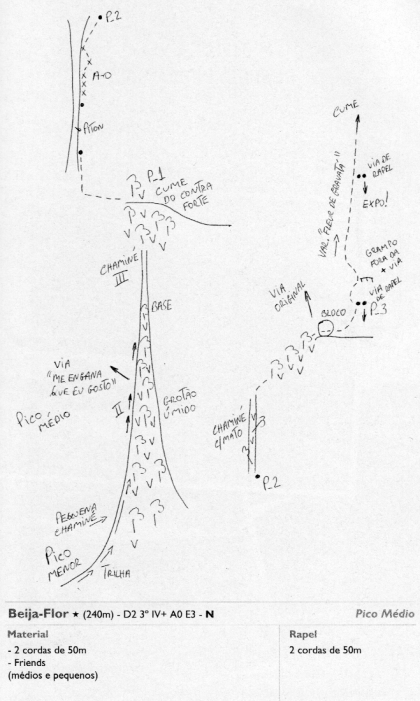 P_2
A-0
ATON
P_1
CUME
DO CONTRA
FORTE
CHAMINÉ
III
BASE
VIA
"ME ENGANA
QUE EU GOSTO"
II
PICO
MÉDIO
GROTÃO
ÚMIDO
PEQUENA
CHAMINÉ
PICO
MENOR
TRILHA
CUME
VIA DE
RAPEL
EXPO!
VAR. "FLEUR DE GRAVATÁ"
GRAMPO
FORA DA
VIA
VIA
DE
RAPEL
P_3
VIA
ORIGINAL
BLOCO
CHAMINÉ
C/MATO
P_2
Beija-Flor ★ (240m) - D2 3º IV+ A0 E3 - N
Pico Médio
Material
- 2 cordas de 50m
- Friends
(médios e pequenos)
Rapel
2 cordas de 50m